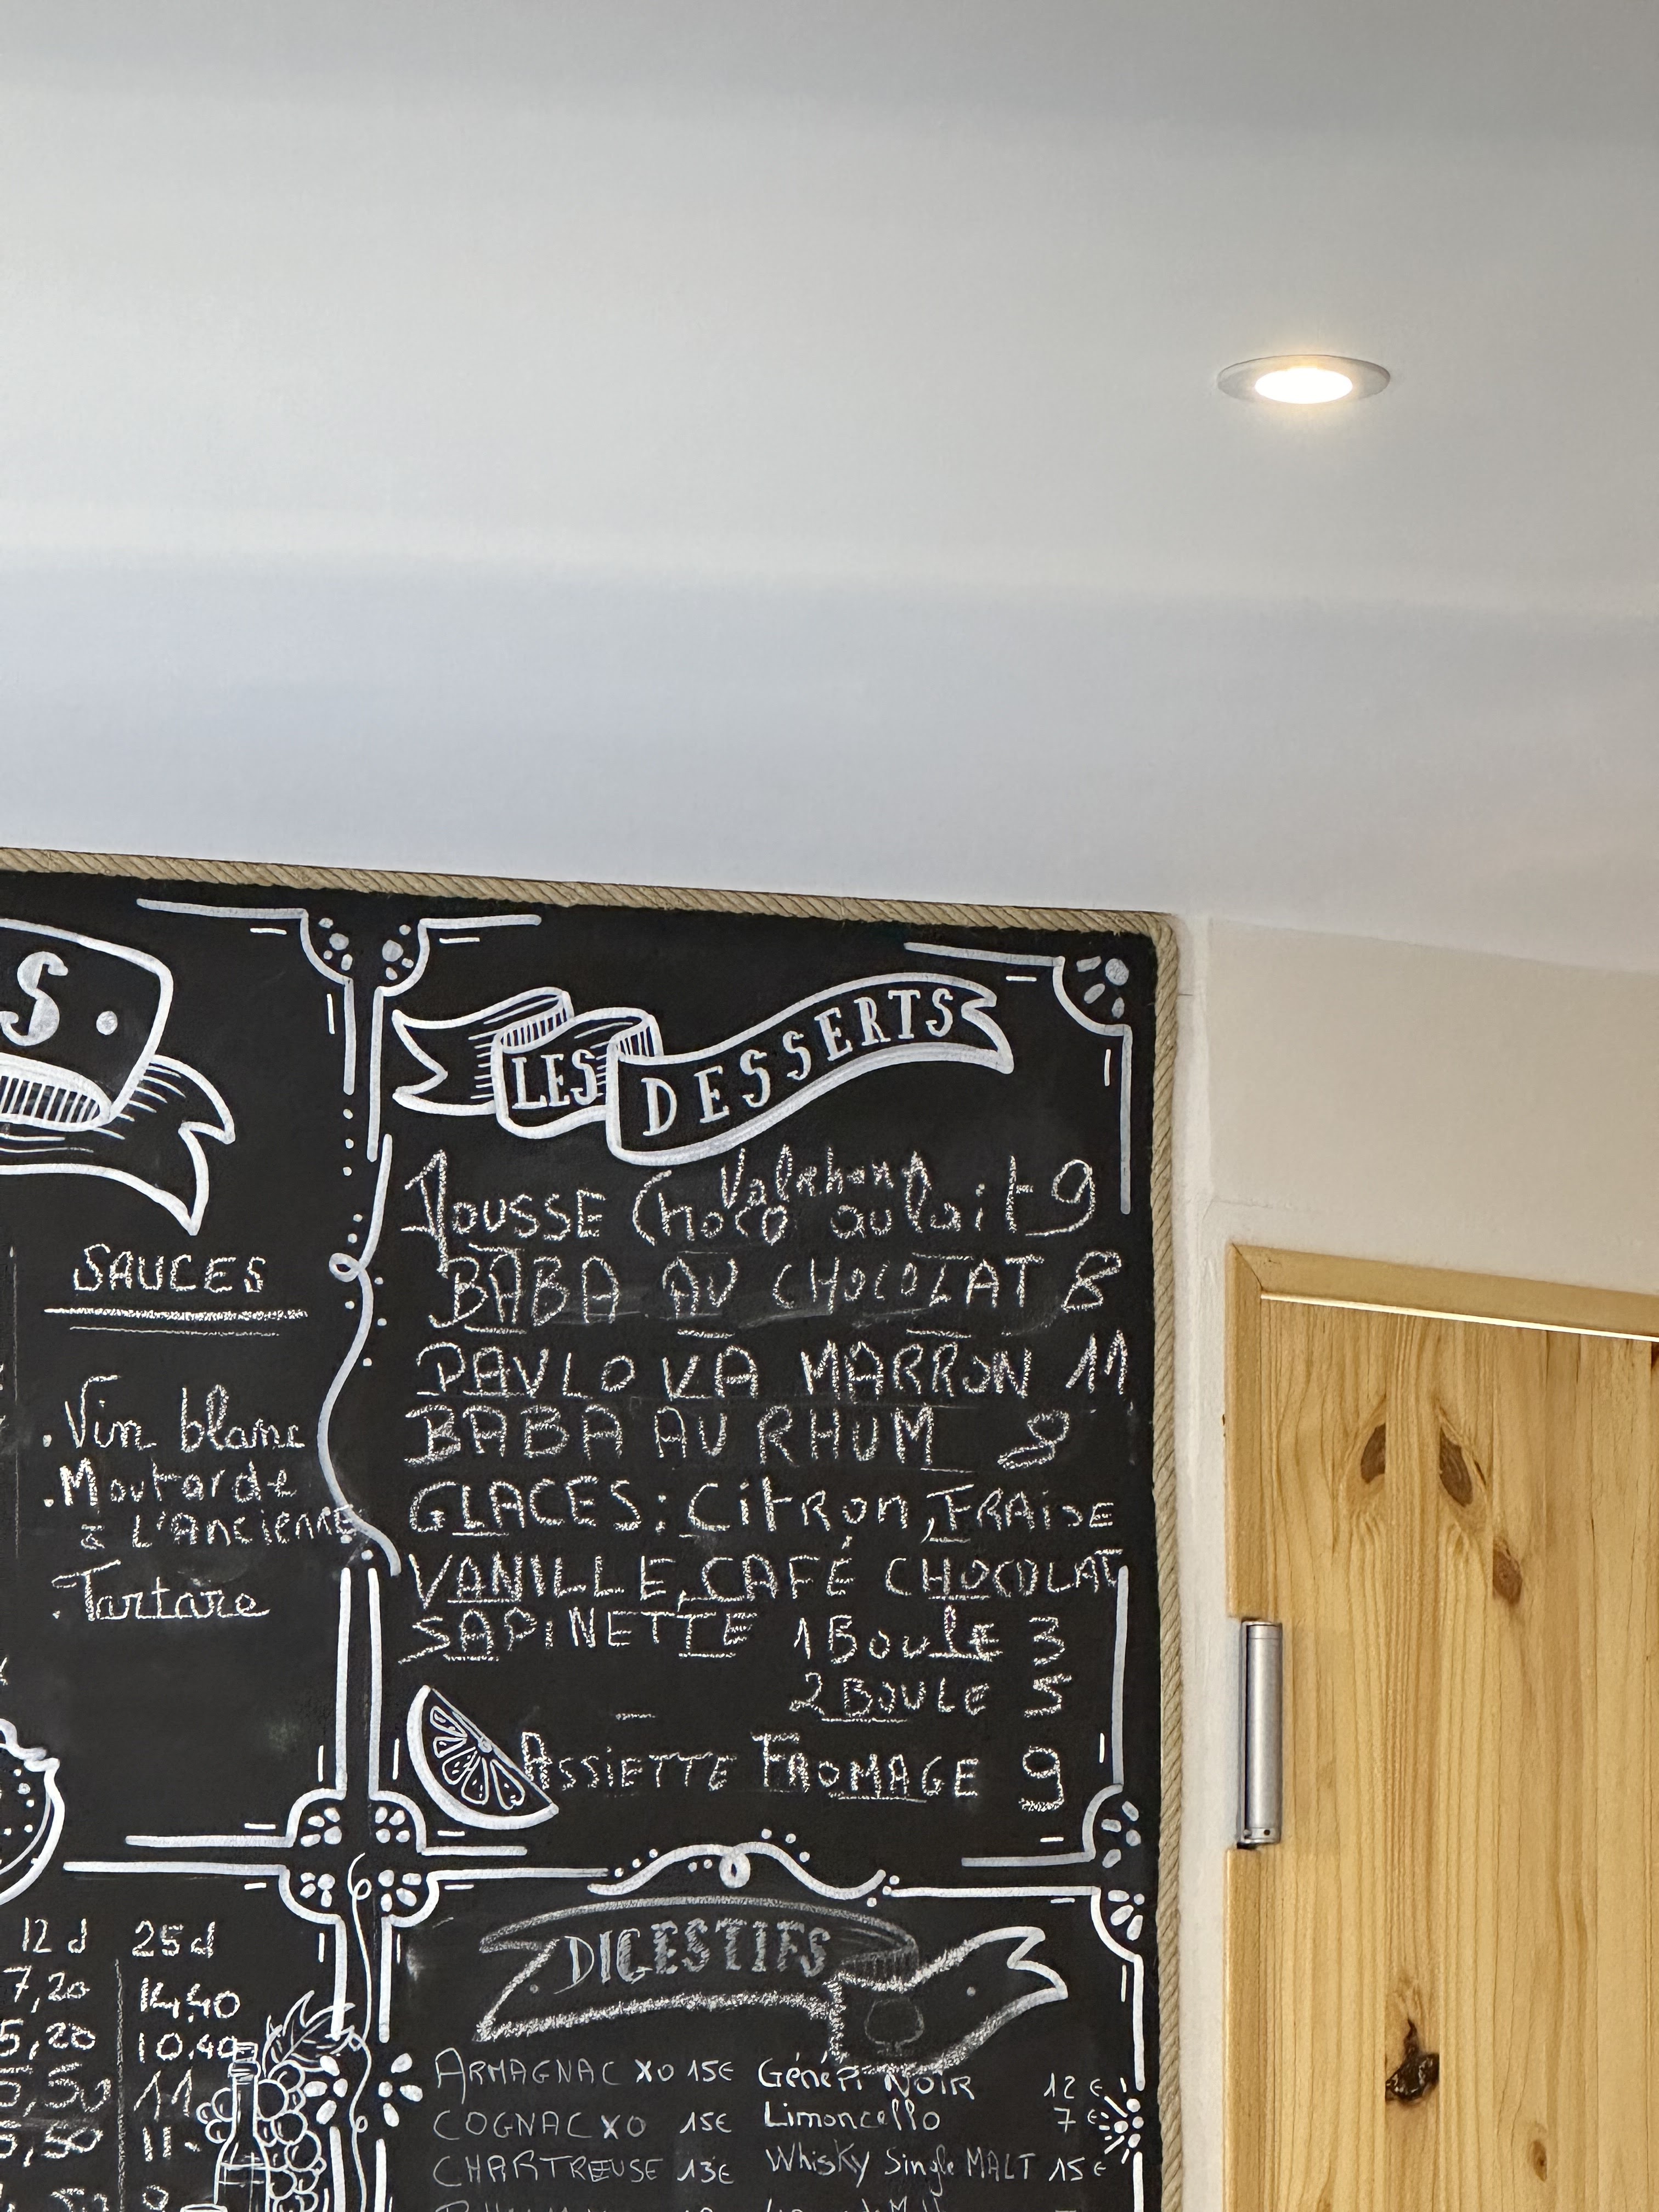 S
SAUCES
. Vin blanc
. Moutarde
à L'AnciENNE
. Tartare
LES DESSERTS
Valrhona
MOUSSE Choco au lait 9
BABA AU CHOCOLAT 8
PAVLOVA MARRON 11
BABA AU RHUM 9
GLACES : Citron, FRAiSE
VANILLE, CAFÉ CHOCOLAT
SAPiNETTE 1 BoulE 3
2 BOULE 5
ASSiETTE FROMAGE 9
12 d 25 d
7,20 14,40
5,20 10,40
5,50 11
5,50 11.
DIGESTIFS
ARMAGNAC XO 15€ Génépi NOiR 12€
COGNAC XO 15€ Limoncello 7€
CHARTREUSE 13€ Whisky Single MALT 15€